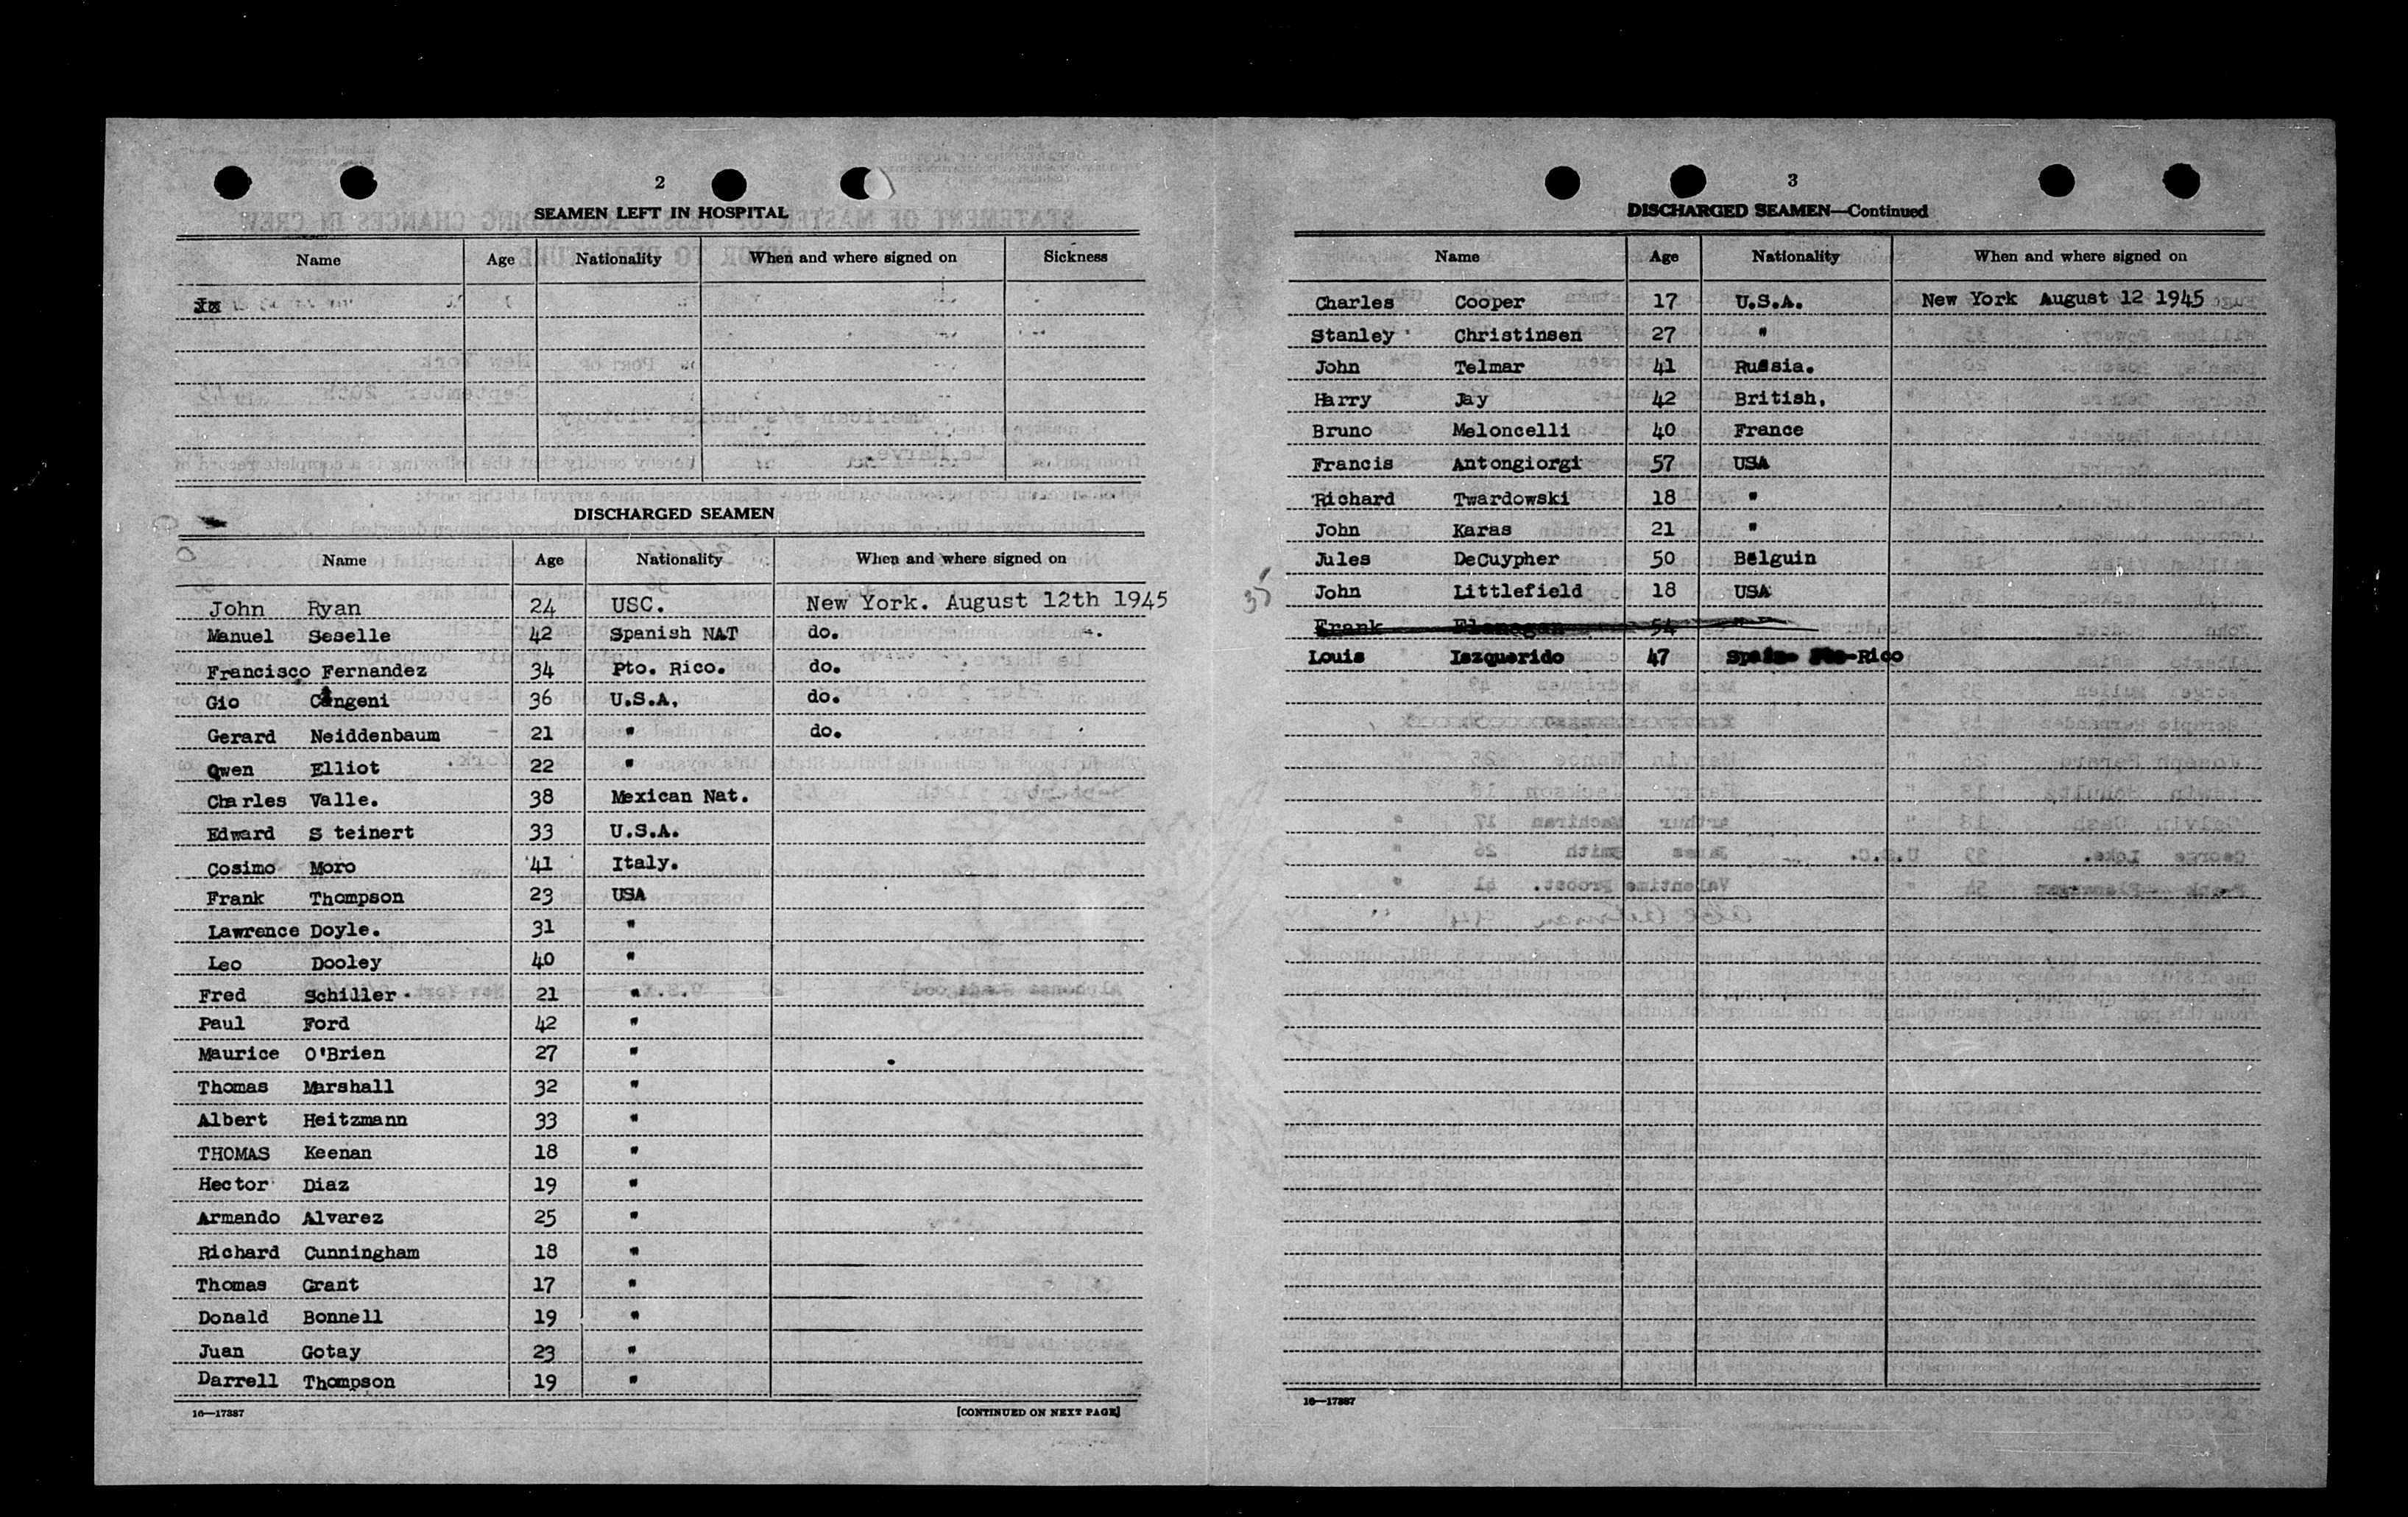 2
SEAMEN LEFT IN HOSPITAL
Name Age Nationality When and where signed on Sickness
DISCHARGED SEAMEN
Name Age Nationality When and where signed on
John Ryan 24 USC. New York. August 12th 1945
Manuel Seselle 42 Spanish NAT do.
Francisco Fernandez 34 Pto. Rico. do.
Gio Cangeni 36 U.S.A. do.
Gerard Neiddenbaum 21 " do.
Qwen Elliot 22 "
Charles Valle. 38 Mexican Nat.
Edward S teinert 33 U.S.A.
Cosimo Moro 41 Italy.
Frank Thompson 23 USA
Lawrence Doyle. 31 "
Leo Dooley 40 "
Fred Schiller. 21 "
Paul Ford 42 "
Maurice O'Brien 27 "
Thomas Marshall 32 "
Albert Heitzmann 33 "
THOMAS Keenan 18 "
Hector Diaz 19 "
Armando Alvarez 25 "
Richard Cunningham 18 "
Thomas Grant 17 "
Donald Bonnell 19 "
Juan Gotay 23 "
Darrell Thompson 19 "
16—17387 [CONTINUED ON NEXT PAGE]
3
DISCHARGED SEAMEN—Continued
Name Age Nationality When and where signed on
Charles Cooper 17 U.S.A. New York August 12 1945
Stanley Christinsen 27 "
John Telmar 41 Russia.
Harry Jay 42 British.
Bruno Meloncelli 40 France
Francis Antongiorgi 57 USA
Richard Twardowski 18 "
John Karas 21 "
Jules DeCuypher 50 Belguin
35
John Littlefield 18 USA
Frank Flanogan 54 "
Louis Iszquerido 47 Rico
16—17387